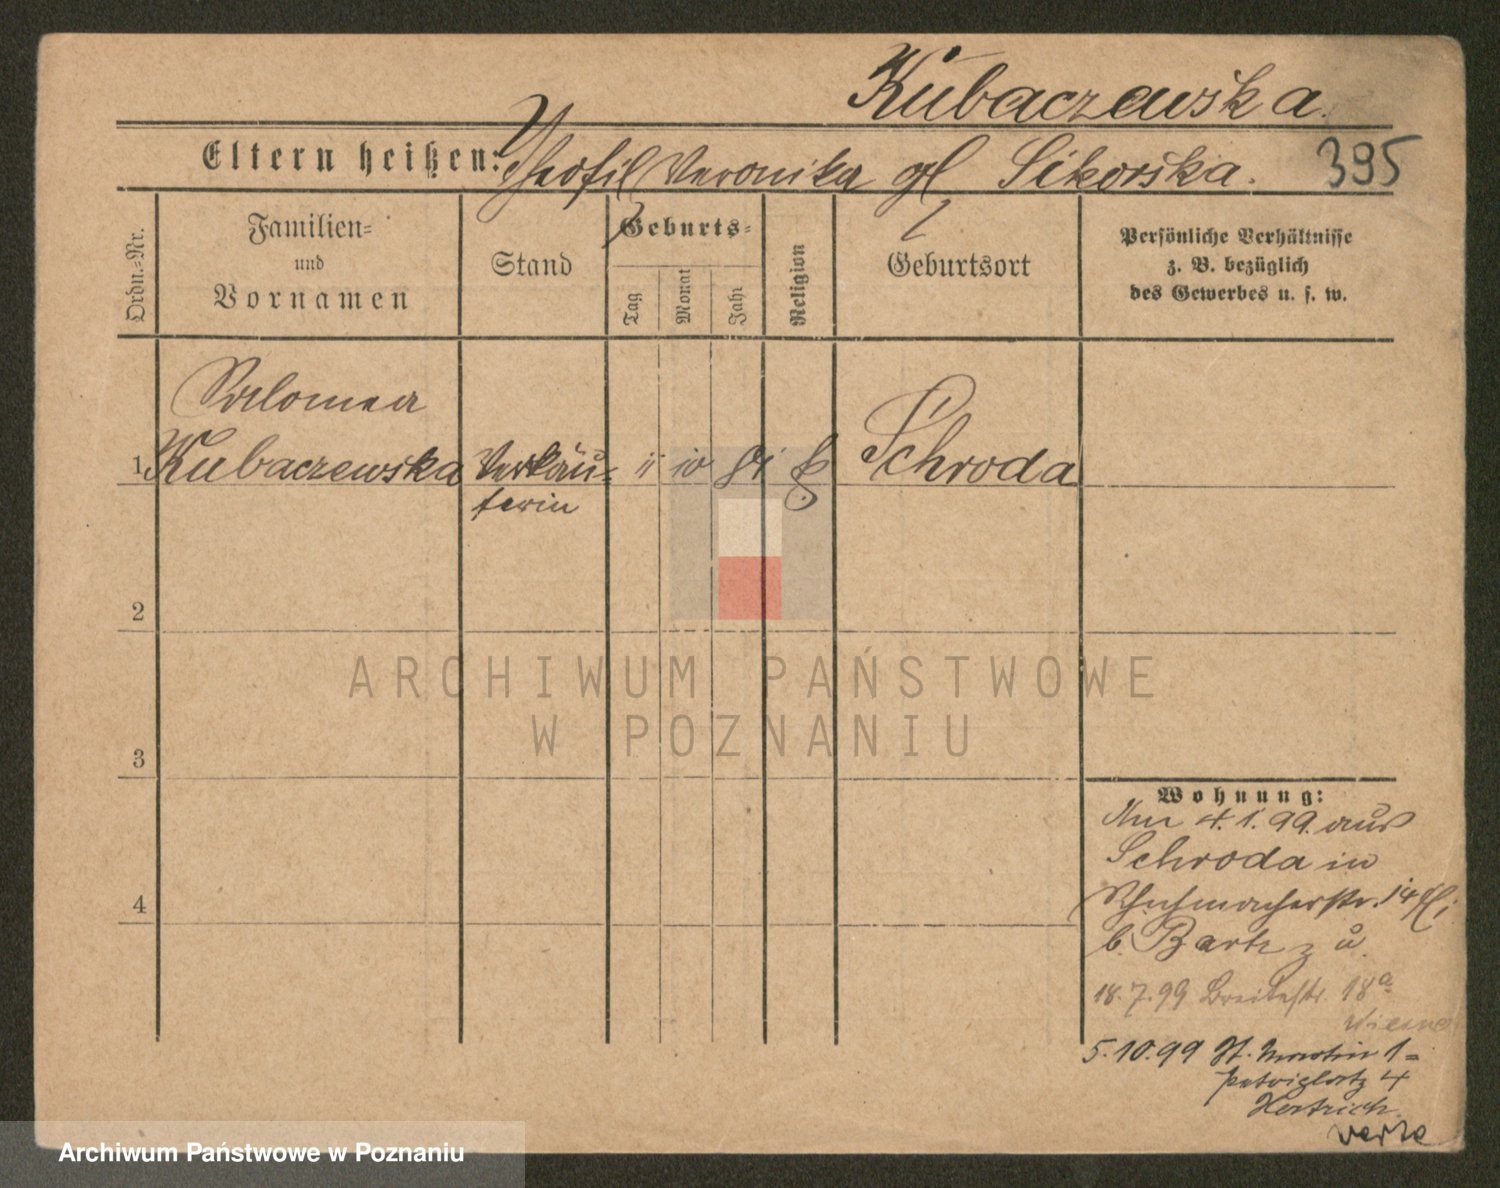 Kubaczewska.
Eltern heißen: Theofil Veronika gb Sikorska. 395
Ordn.=Nr.
Familien=
und
Vornamen
Stand
Geburts=
Tag
Monat
Jahr
Religion
Geburtsort
Persönliche Verhältnisse
z. B. bezüglich
des Gewerbes u. s. w.
Salomea
1 Kubaczewska Verkäu= 11 10 81 k Schroda
ferin
2
3
4
ARCHIWUM PAŃSTWOWE
W POZNANIU
Wohnung:
Am 4.1.99. aus
Schroda in
Schuhmacherstr. 14
b. Bartz
18.7.99 Breitestr. 18a
5.10.99 St. Martin 1=
Petriplatz 4
Hertrich.
verte
Archiwum Państwowe w Poznaniu